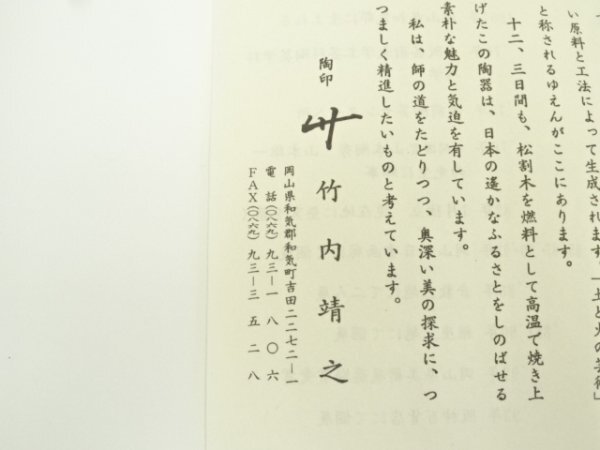 い原料と工法によって生成されます。「土と火の芸術」
と称されるゆえんがここにあります。
十二、三日間も、松割木を燃料として高温で焼き上
げたこの陶器は、日本の遙かなふるさとをしのばせる
素朴な魅力と気迫を有しています。
私は、師の道をたどりつつ、奥深い美の探求に、つ
つましく精進したいものと考えています。
陶印
竹内靖之
岡山県和気郡和気町吉田二二七二－一
電話(〇八六九)九三－一八〇六
FAX(〇八六九)九三－三五二八